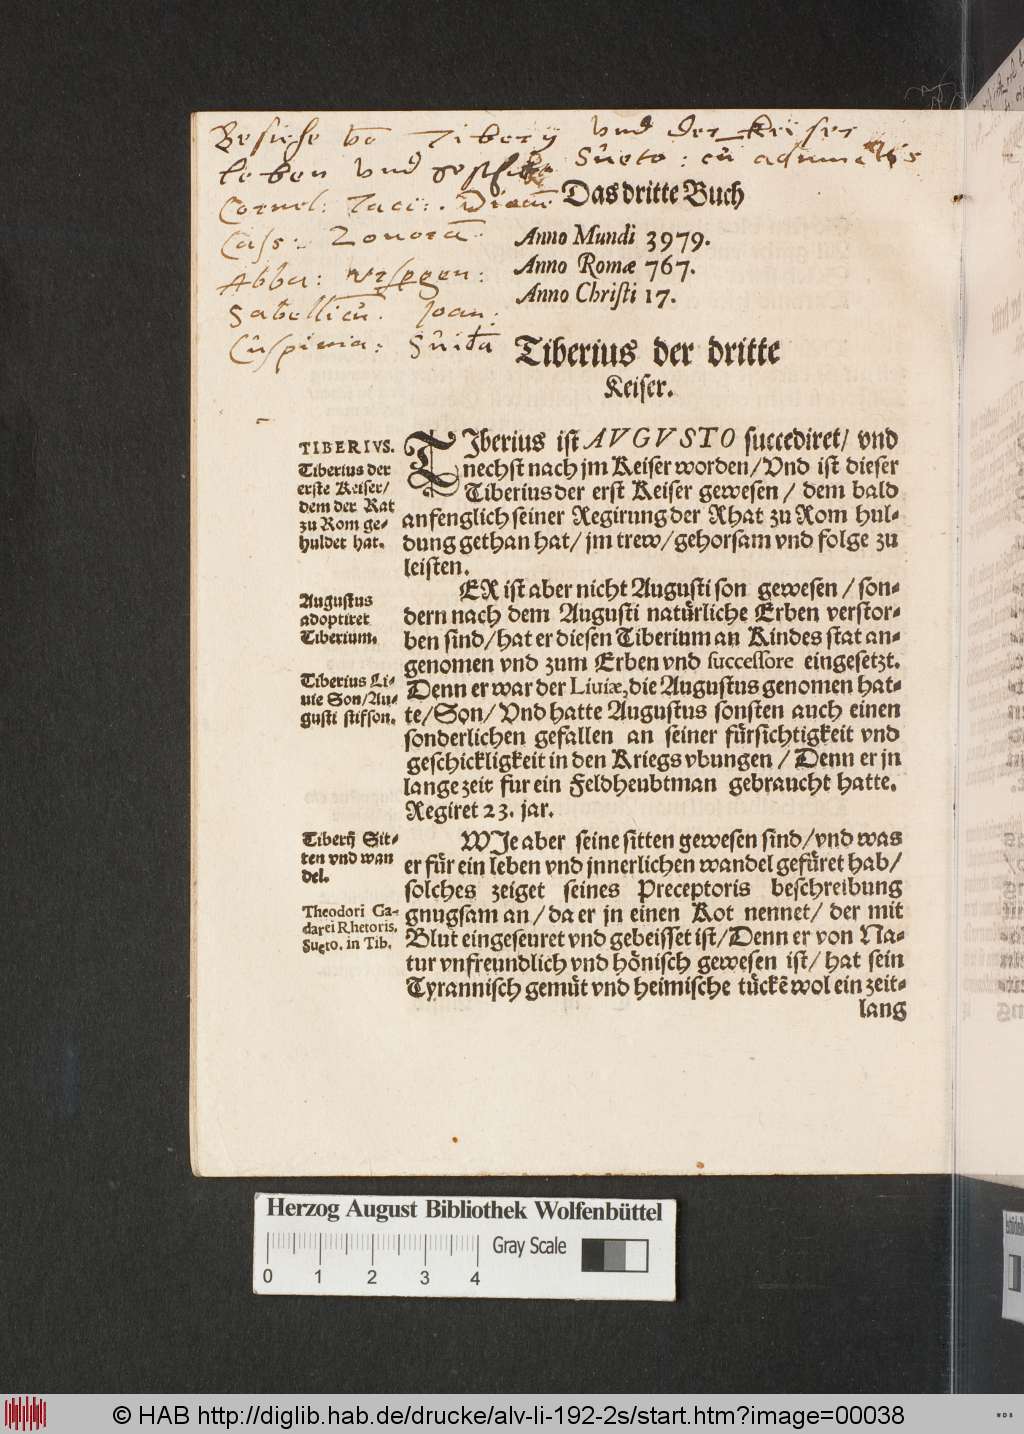 Besiehe vō Tiberÿ vnd der Keiser
leben vnd Sueto: cū
Cornel: Taci:.
Cass: Zonorā
Abba: Vrspgen:
Sabellicū. Joan:
Cuspinia: Suida
Das dritte Buch
Anno Mundi 3979.
Anno Romæ 767.
Anno Christi 17.
Tiberius der dritte
Keiser.
TIBERIVS.
Tiberius der
erste Keiser/
dem der Rat
zu Rom ge-
huldet hat.
TJberius ist AVGVSTO succediret/ vnd
nechst nach jm Keiser worden/ Vnd ist dieser
Tiberius der erst Keiser gewesen/ dem bald
anfenglich seiner Regirung der Rhat zu Rom hul-
dung gethan hat/ jm trew/ gehorsam vnd folge zu
leisten.
Augustus
adoptiret
Tiberium.
Tiberius Li-
uie Son/ Au-
gusti stifson.
ER ist aber nicht Augusti son gewesen/ son-
dern nach dem Augusti natürliche Erben verstor-
ben sind/ hat er diesen Tiberium an Kindes stat an-
genomen vnd zum Erben vnd successore eingesetzt.
Denn er war der Liuiæ, die Augustus genomen hat-
te/ Son/ Vnd hatte Augustus sonsten auch einen
sonderlichen gefallen an seiner fürsichtigkeit vnd
geschickligkeit in den Kriegs vbungen/ Denn er jn
lange zeit fur ein Feldheubtman gebraucht hatte.
Regiret 23. jar.
Tiberij Sit-
ten vnd wan
del.
Theodori Ga-
darei Rhetoris.
Sueto. in Tib.
WJe aber seine sitten gewesen sind/ vnd was
er für ein leben vnd jnnerlichen wandel gefüret hab/
solches zeiget seines Preceptoris beschreibung
gnugsam an/ da er jn einen Kot nennet/ der mit
Blut eingeseuret vnd gebeisset ist/ Denn er von Na-
tur vnfreundlich vnd hönisch gewesen ist/ hat sein
Tyrannisch gemüt vnd heimische tückē wol ein zeit-
lang
Herzog August Bibliothek Wolfenbüttel
Gray Scale
0 1 2 3 4
© HAB http://diglib.hab.de/drucke/alv-li-192-2s/start.htm?image=00038